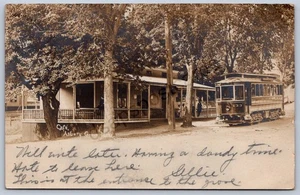 Will write later. Having a dandy time.
Hate to leave here. Sellie.
This is at the entrance to the grove